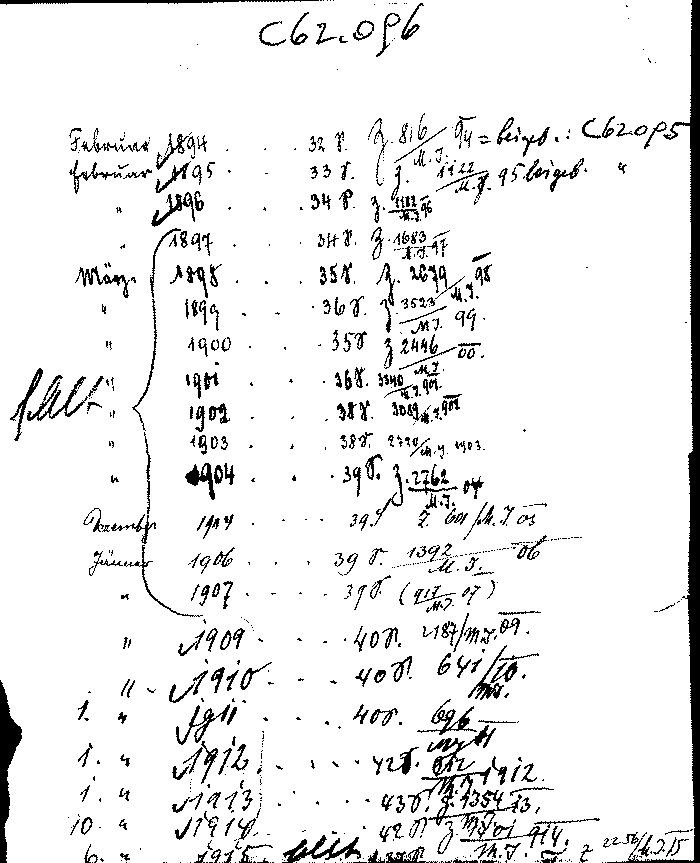 C62.096
Februar 1894 . . . 32 S. Z. 816/M.I. 94 = beigeb.: C62.095
Februar 1895 . . . 33 S. Z. 1122/M.I. 95 beigeb. "
" 1896 . . . 34 S. Z. 1182/M.I. 96
" 1897 . . . 34 S. Z. 1683/M.I. 97
März 1898 . . . 35 S. Z. 2679/M.I. 98
" 1899 . . . 36 S. Z. 3523/M.I. 99.
" 1900 . . . 35 S. Z. 2446/M.I. 00.
fehlt " 1901 . . . 36 S. 3340/M.I. 901
" 1902 . . . 38 S. 3089/M.I. 902
" 1903 . . . 38 S. 2720/M.I. 1903.
" 1904 . . . 39 S. Z. 2762/M.I. 04
Dezember 1904 . . . 39 S. Z. 601/M.I. 05
Jänner 1906 . . . 39 S. 1392/M.I. 06
" 1907 . . . 39 S. (917/M.I. 07)
" 1909 . . . 40 S. 2187/M.I. 09.
" 1910 . . . 40 S. 641/10. M.I.
1. " 1911 . . . 40 S. 696/M.I. 11
1. " 1912 . . . 42 S. 812/M.I. 1912.
1. " 1913 . . . 43 S. Z. 1354/M.I. 13.
10. " 1914 . . . 42 S. Z. M.I. 914.
6. " 1915. fehlt Z 2256/M.I. 15